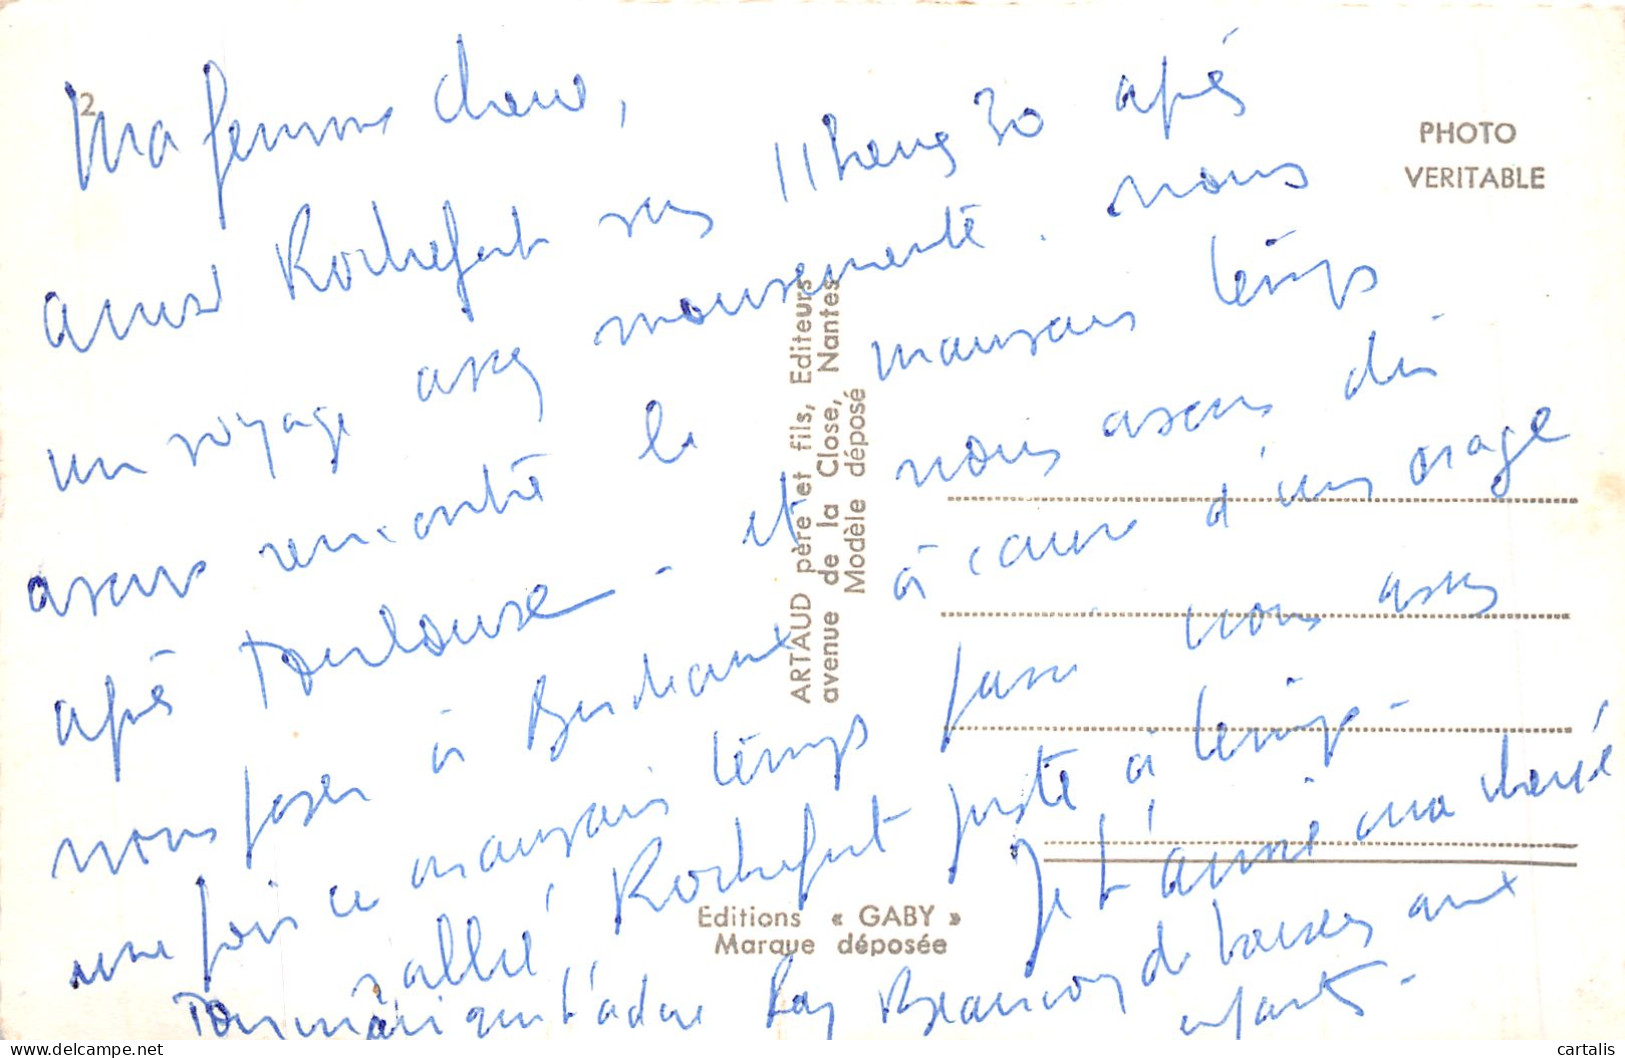 2
Ma femme cherie,
arrivé Rochefort vers 11 heures 30 après
un voyage assez mouvementé. nous
avons rencontré le mauvais temps
après Toulouse - et nous avons dû
nous poser à Bordeaux à cause d'un orage
une fois ce mauvais temps passé nous avons
rallié Rochefort juste à temps -
Je t'aime ma cherie
Ton mari qui t'adore Beaucoup de baisers aux
enfants -
PHOTO
VERITABLE
ARTAUD père et fils, Editeurs
avenue de la Close, Nantes
Modèle déposé
Editions « GABY »
Marque déposée
cartalis